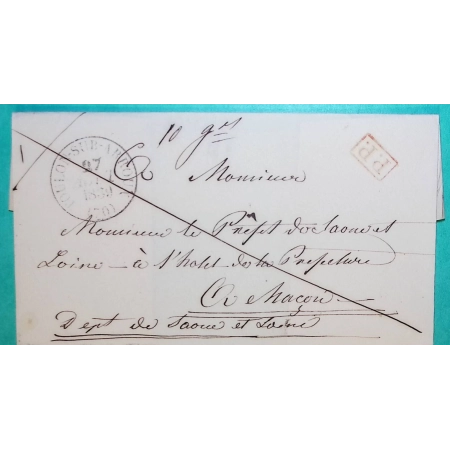 10 grs
TOULON-SUR-ARROUX
27
1839
(70)
P.P.
Monsieur
Monsieur le Préfet de Saone et
Loire – à l'hotel de la Préfecture
A Macon
Dept de Saone et Loire